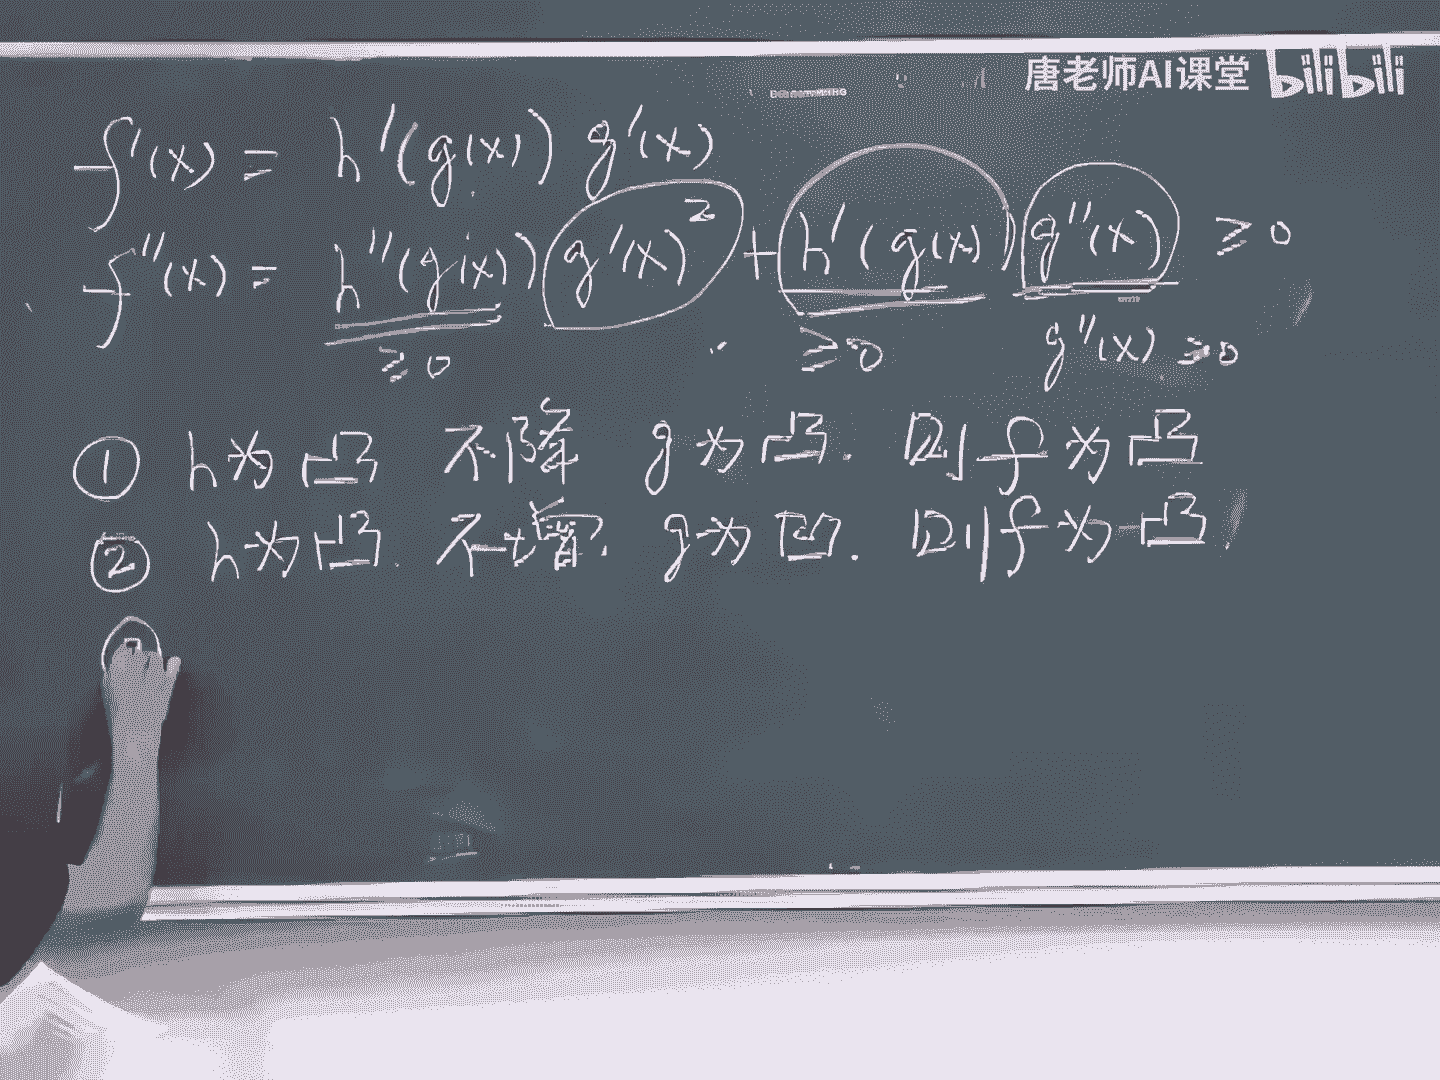 唐老师AI课堂 bilibili
f'(x) = h'(g(x)) g'(x)
f''(x) = h''(g(x)) g'(x)² + h'(g(x)) g''(x) ≥ 0
≥ 0 ≥ 0 g''(x) ≥ 0
① h为凸 不降 g为凸. 则f为凸
② h为凸. 不增. g为凹. 则f为凸.